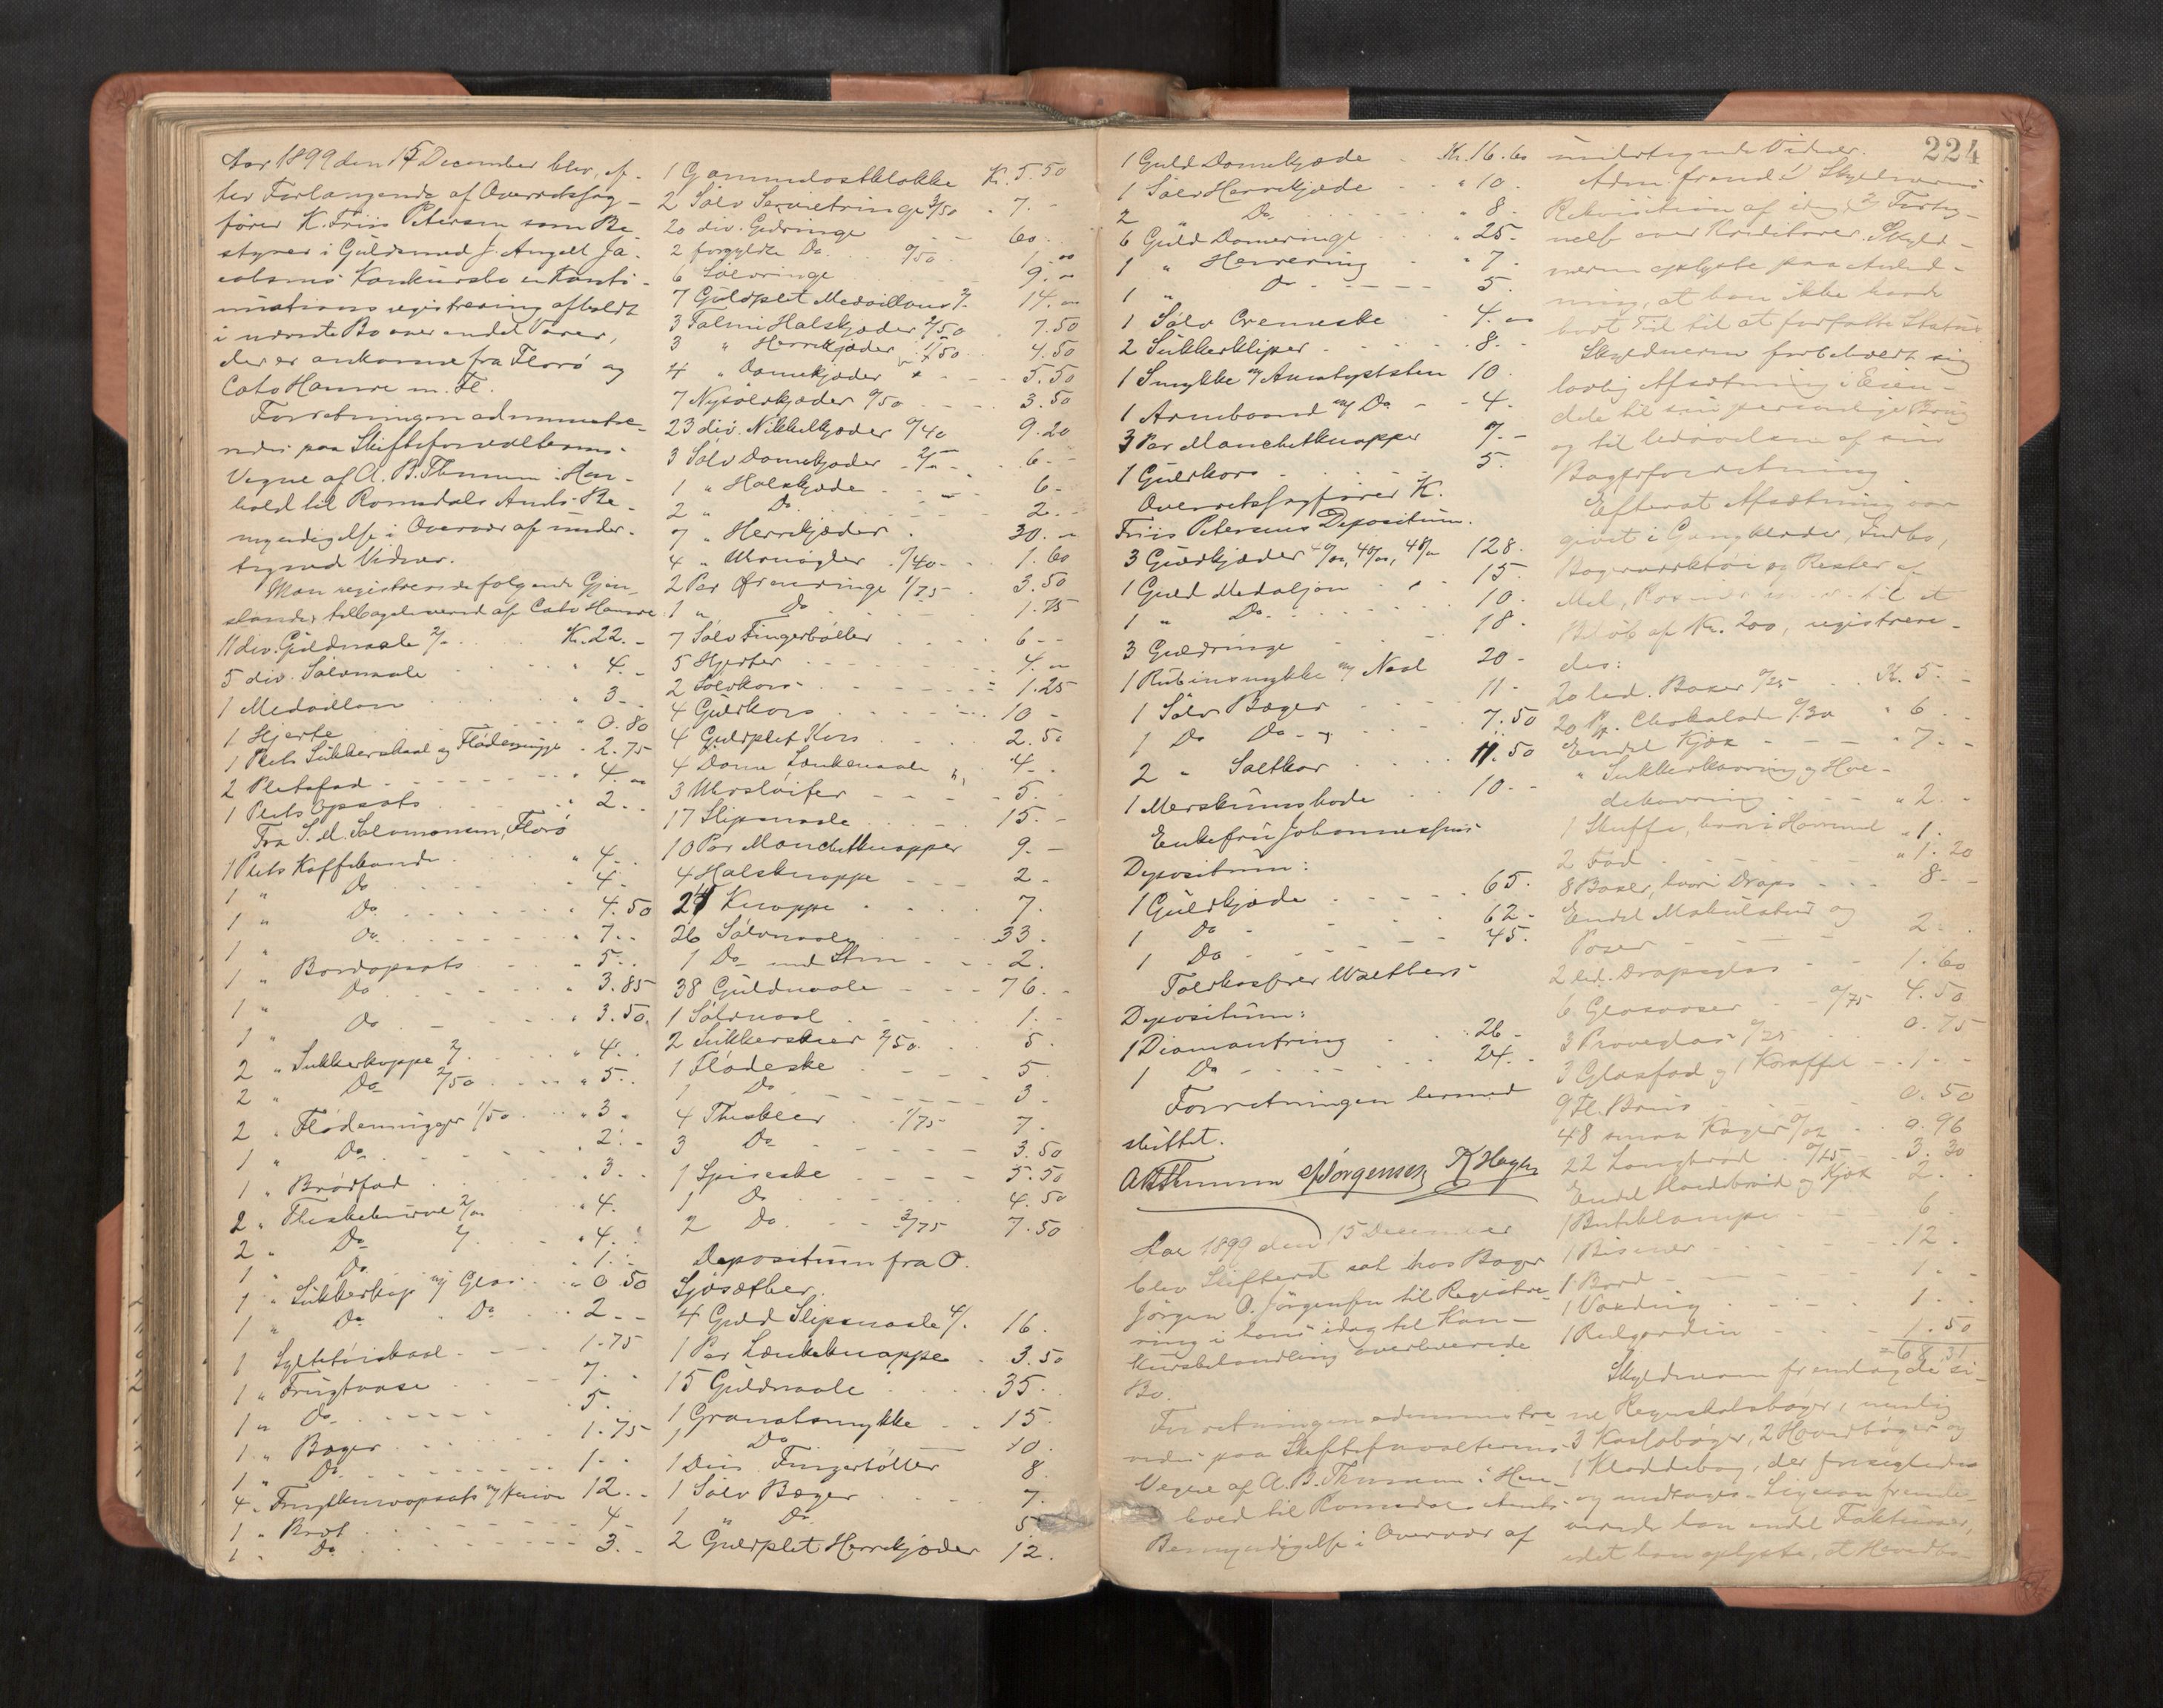 Aar 1899 den 15 December blev, ef-
ter Forlangende af Overretssag-
fører K. Friis Petersen som Be
styrer i Guldsmed J. Angell Ja-
cobsens Konkursbo en Konti-
nuationsregistrering afholdt
i nævnte Bo over endel Varer,
der er ankomne fra Florø og
Cato Hamre m. Fl.
Forretningen administre-
redes paa Skifteforvalterens
Vegne af A. B. Thumm i Hen-
hold til Romsdals Amts Be-
myndigelse i Overvær af under-
tegnede Vidner.
Man registrerede følgende Gjen-
stande, tilbageleveret af Cato Hamre
11 div. Guldnaale 2/- Kr. 22.-
5 div. Sølvnaale " 4.-
1 Medaillon " 3-
1 Hjerte " 0.80
1 Plets Sukkerskaal og Flødemugge " 2.75
2 Pletsfad " 4.-
1 Plets Opsats " 2..
Fra S. M. Salomonsen, Florø
1 Plets Kaffekande " 4-
1 " Do " 4-
1 " Do " 4.50
1 " Do " 7..
1 " Bordopsats " 5..
1 " Do " 3.85
1 " Do " 3.50.
2 " Sukkerkoppe 2/ " 4..
2 " Do 2/50 " 5..
2 " Flødemugger 1/50 " 3.
1 " Do " 2.-
1 " Brødfad 3..
2 " Theskekurve 2/00 " 4.
2 " Do 2/ " 4..
1 " Do 1..
1 " Sukkerkop m/ Glas " 0.50
1 " Do Do 2--
1 Syltetøiskaal 1.75
1 " Frugtvase 7.
1 " Do 5.
1 " Bæger 1.75
1 " Do 1-.
4 " Frugtknivopsats m/ Knive 12..
1 " Bret 4
1 " Do 3.-
1 Gammelostklokke Kr. 5.50
2 Sølv Servietringe 3/50 " 7.-
20 div. Guldringe 60.
2 forgyldte Do. 0/50 1.00
6 Sølvringe 9.00
7 Guldplet Medaillons 2/- 14.00
3 Talmi Halskjæder 2/50 7.50
3 " Herrekjæder 1/50 4.50
4 " Damekjæder 5.50
7 Nysølvkjæder 0/50 3.50
23 div. Nikkelkjæder 0/40 9.20
3 Sølv Damekjæder 2/- 6--
1 " Halskjæde 6-
2 " Do 2.-
7 " Herrekjæder 30.-
4 " Uhrnøgler 0/40 1.60
2 Par Ørenringe 1/75 3.50
1 " Do 1.75
7 Sølv Fingerbøller 6--
5 Hjerter 4.-
2 Sølvkors 1.25
4 Guldkors 10-
4 Guldplet Kors 2.50
4 Dame Lænkenaale 4-.
3 Uhrsløifer 5.
17 Slipsnaale 15.-
10 Par Manchetknapper 9.-
4 Halsknappe 2-
24 Knappe 7.
26 Sølvnaale 33.
1 Do med Sten 2.
38 Guldnaale 76.-
1 Sølvnaal 1.-
2 Sukkerskeer 2/50 5.
1 Flødeske 5.
1 Do 3-
4 Theskeer 1/75 7-
3 Do 3.50
1 Spiseske 5.50
1 Do 4.50
2 Do 3/75 7.50
Depositum fra O.
Sjøsæther.
4 Guld Slipsnaale 4/. 16.
1 Par Lænkeknappe 3.50
15 Guldnaale 35.
1 Granatsmykke 15.
1 Do 10.
1 Dus Fingerbøller 8.
1 Sølv Bæger 7.
1 " Do 5
2 Guldplet Herrekjæder 12.
1 Guld Damekjæde Kr. 16.60
1 Sølv Herrekjæde " 10.
2 " Do " 8.
6 Guld Dameringe " 25-
1 " Herrering " 7.
1 " Do 5.
1 Sølv Cremeske 4.-
2 Sukkerkliper 8.-
1 Smykke m/ Ametyststen 10.
1 Armbaand m/ Do 4.
3 Par Manchetknapper 7.-
1 Guldkors 5.
Overretssagfører K.
Friis Petersens Depositum.
3 Guldkjæder 40/00, 40/00, 48/00 128.
1 Guld Medaljon 15.
1 " Do 10.
3 Guldringe 18.
1 Rubinsmykke m/ Naal 20-
1 Sølv Bæger 11-
1 Do Do 7.50
2 " Saltkar 11.50
1 Merskumshode 10.-
Enkefru Johannessens
Depositum:
1 Guldkjæde 65.
1 Do 62-
1 Do 45.
Toldkasserer Walthers
Depositum:
1 Diamantring 26-
1 Do 24.-
Forretningen hermed
sluttet.
ABThumm Jørgensen K Hagen
Aar 1899 den 15 December
blev Skifteret sat hos Bager
Jørgen O. Jørgensen til Registre-
ring i hans idag til Kon-
kursbehandling overleverede
Bo.
Forretningen administre
redes paa Skifteforvalterens
Vegne af A. B. Thumm i Hen-
hold til Romsdals Amts
Bemyndigelse i Overvær af
224
undertegnede Vidner.
Adm. fremla Skyldnerens
Rekvisition af idag, Forteg-
nelse over Kreditorer. Skyld-
neren oplyste paa Anled-
ning, at han ikke havde
havt Tid til at forfatte Status
Skyldneren forbeholdt sig
lovlig Afsætning i Eien-
dele til sin personlige Brug
og til Udøvelsen af sin
Bagerforretning
Efterat Afsætning var
givet i Gangklæder, Indbo,
Bagerværktøi og Rester af
Mel, til et
Beløb af Kr. 200, registrere-
des:
20 led. Baxer 0/25 Kr. 5.-
20 Pk. Chokolade 0/30 " 6
Endel Kjæx " 7.-
" Sukkerkavring og Hve-
dekavring " 2.-
1 Skuffe, hvori " 1.
2 Fad " 1.20
8 Baxer, hvori Drops 8.-
Endel Makulatur og
Poser 2.
2 led. Dropsglas 1.60
6 Glasvaser 0/75 4.50
3 Prøveglas 0/25 0.75
3 Glasfad og 1 Karaffel 1.-
9 Fl. Brus 0.50
48 smaa Kager 0/02 0.96
22 Langbrød 0/15 3.30
Endel Hvedebrød og Kjæx 2.
1 Butiklampe 6.
1 Bismer 12.
1 Bord 1.-
1 Voxdug 1..
1 Rulgardin 1.50
68.31
Skyldneren fremlagde si-
ne Regnskabsbøger, nemlig
3 Kassabøger, 2 Hovedbøger og
1 Kladdebog, der forsegledes
og medtages. Ligesaa fremle-
verede han endel Fakturaer,
idet han oplyste, at Hovedbo-